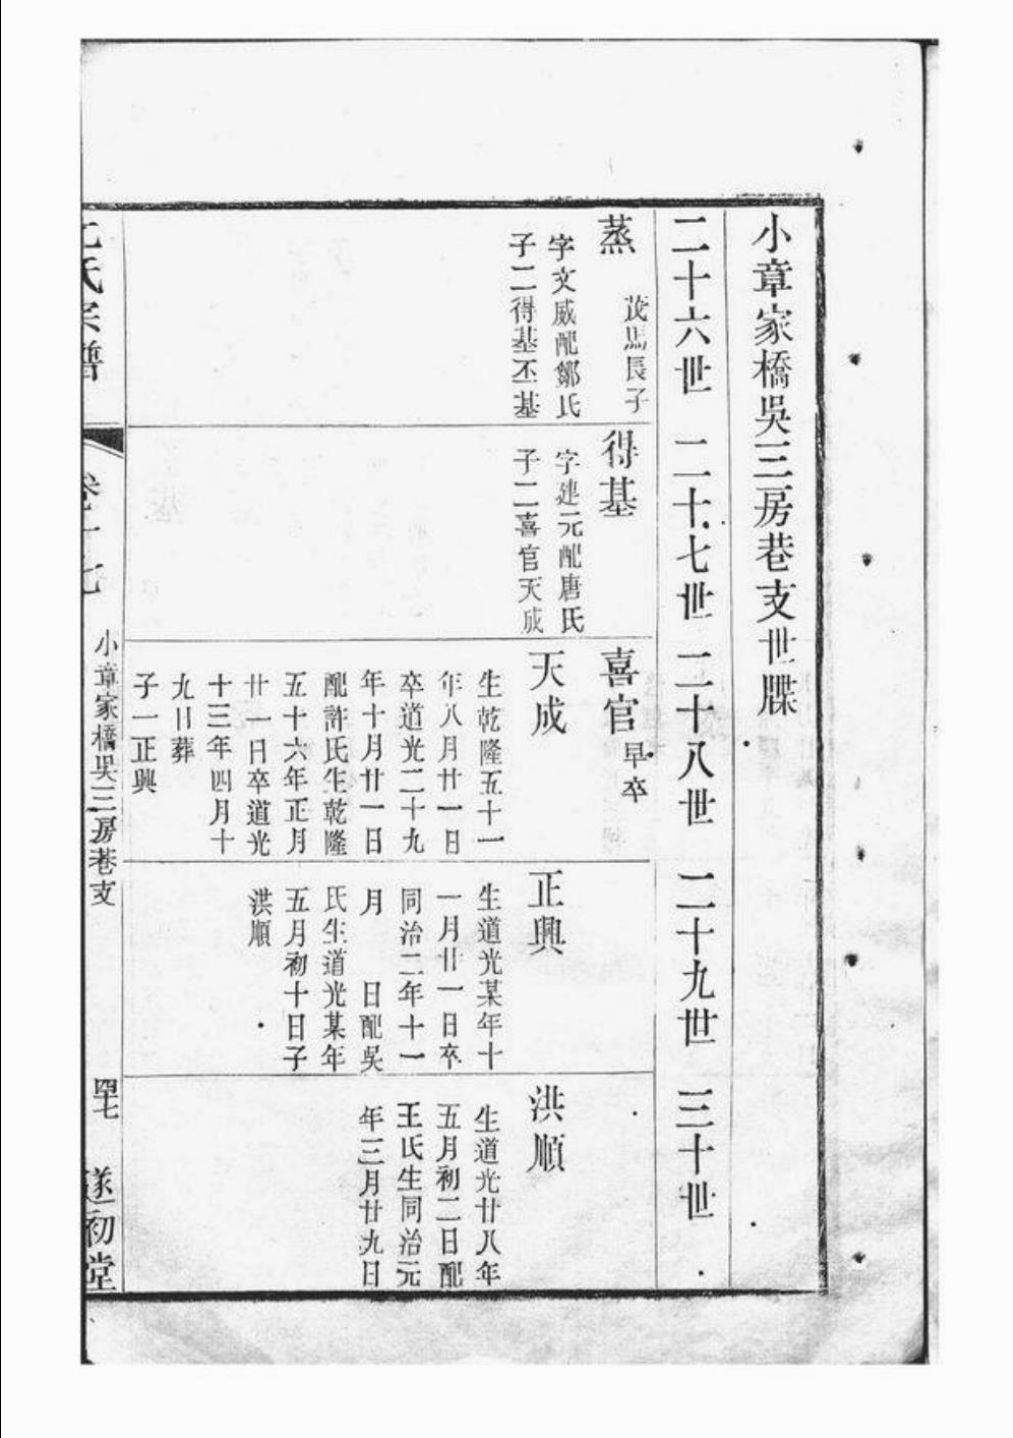 小章家橋吳三房巷支世牒
二十六世
二十七世
二十八世
二十九世
三十世
蒸
茂馬長子
字文威配鄒氏
子二得基丕基
得基
字建元配唐氏
子二喜官天成
喜官
早卒
天成
生乾隆五十一
年八月廿一日
卒道光二十九
年十月廿一日
配許氏生乾隆
五十六年正月
廿一日卒道光
十三年四月十
九日葬
子一正興
正興
生道光某年十
一月廿一日卒
同治二年十一
月 日配吳
氏生道光某年
五月初十日子
洪順
洪順
生道光廿八年
五月初二日配
王氏生同治元
年三月廿九日
氏宗譜
卷十七
小章家橋吳三房巷支
四七
遂初堂